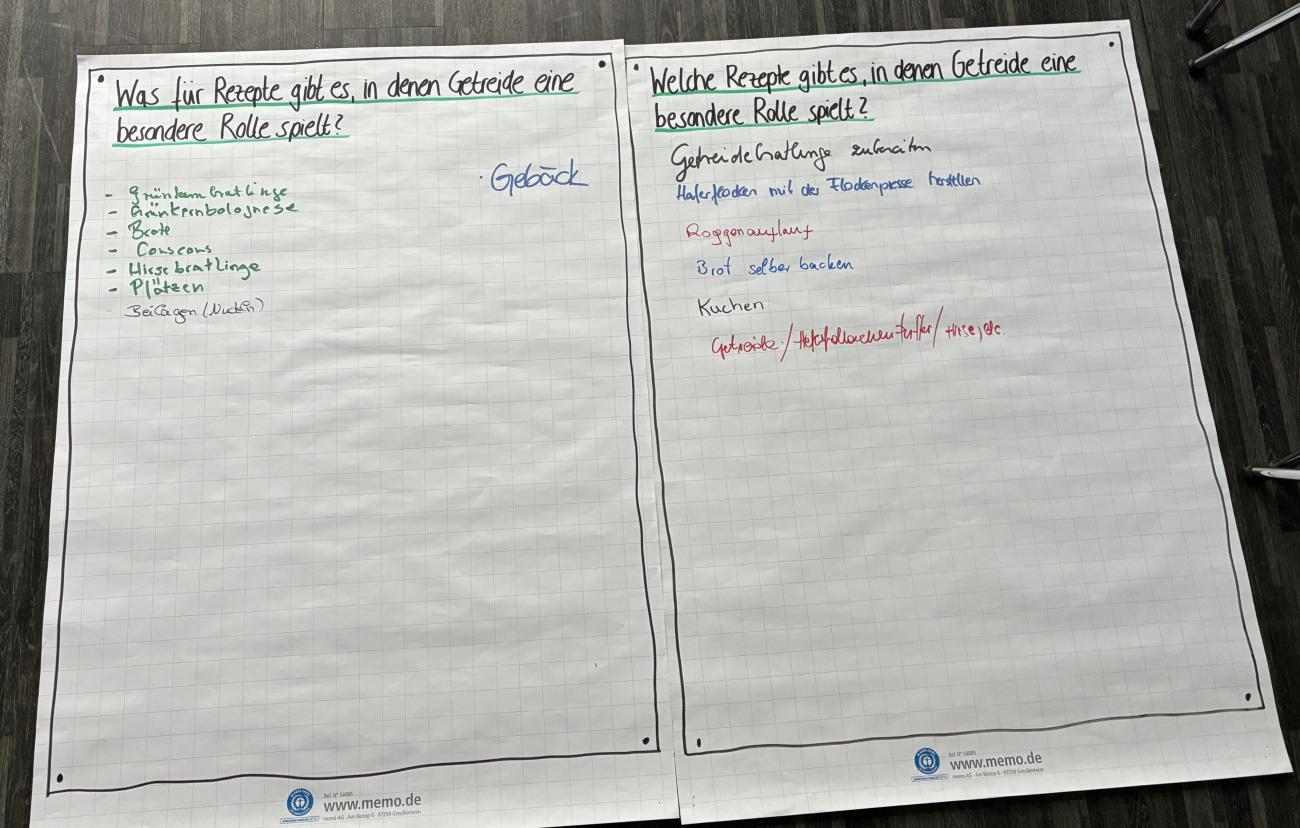 Was für Rezepte gibt es, in denen Getreide eine
besondere Rolle spielt?
· Gebäck
- Grünkernbratlinge
- Grünkernbolognese
- Brote
- Couscous
- Hirsebratlinge
- Plätzen
- Beilagen (Nudeln)
www.memo.de
memo AG · Am Biotop 6 · 97259 Greußenheim
Welche Rezepte gibt es, in denen Getreide eine
besondere Rolle spielt?
Getreidebratlinge zubereiten
Haferflocken mit der Flockenpresse herstellen
Roggenauflauf
Brot selber backen
Kuchen
Getreide / / Hirse, etc.
www.memo.de
memo AG · Am Biotop 6 · 97259 Greußenheim